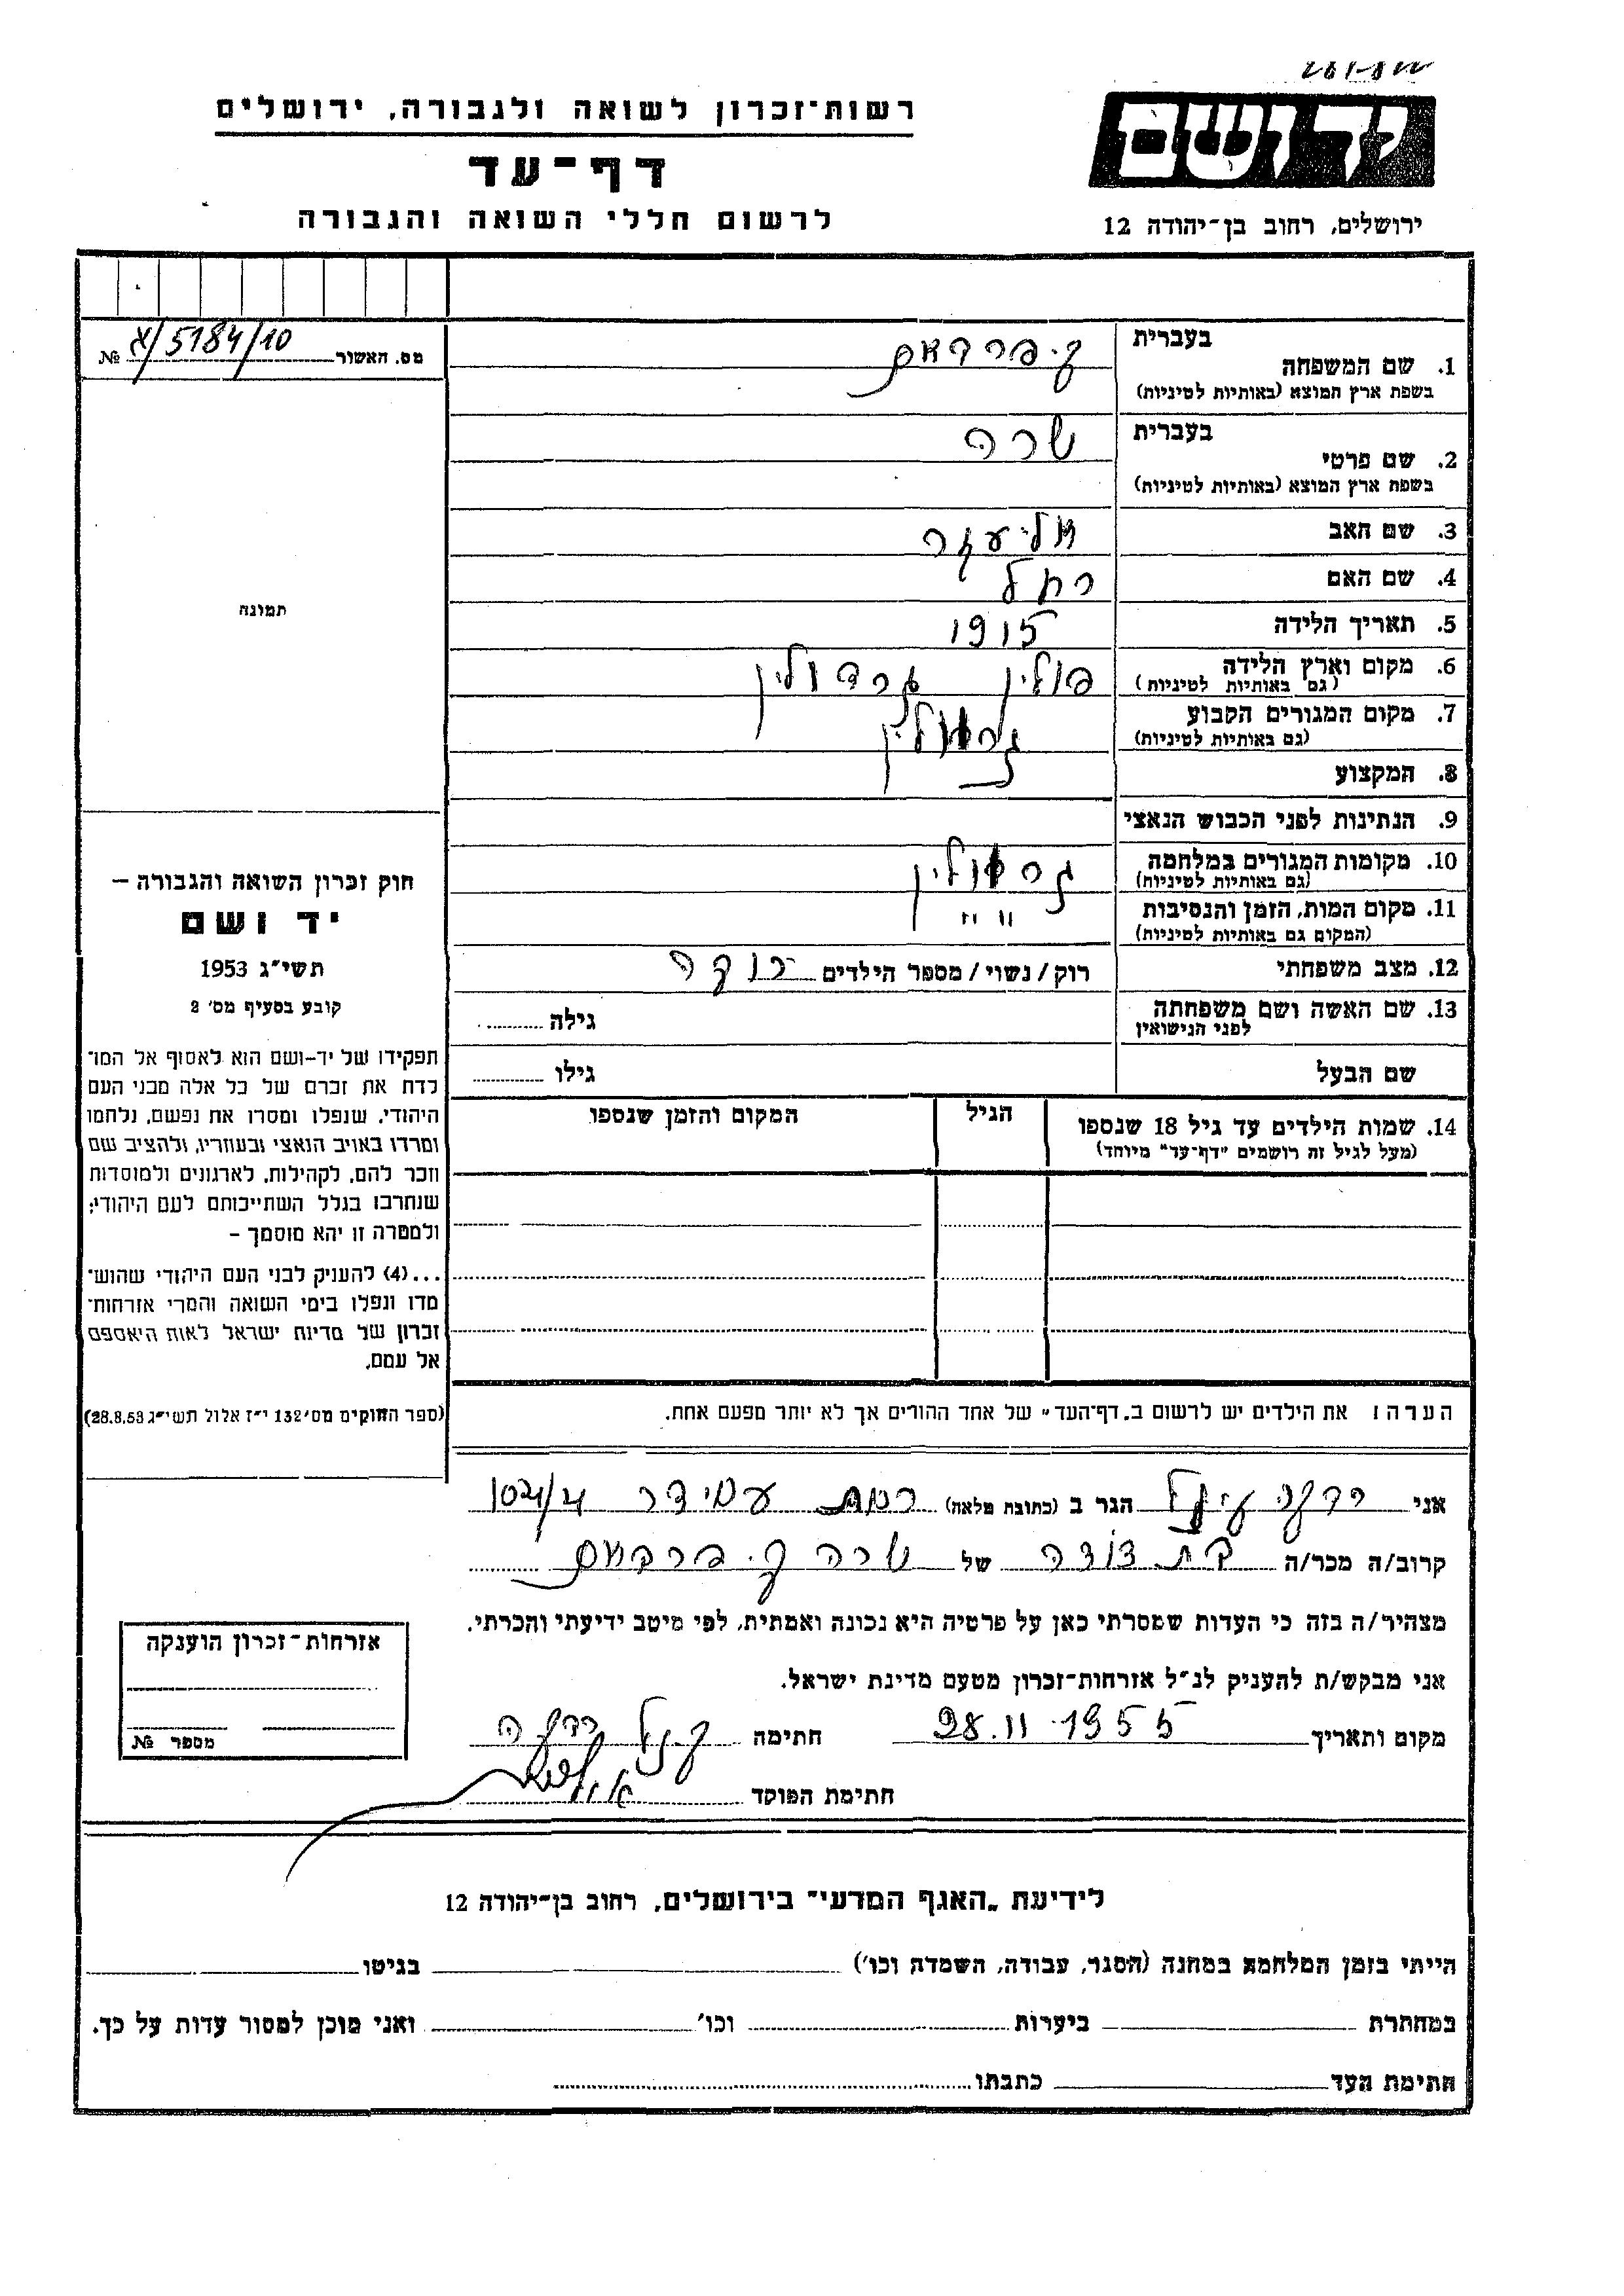 יד ושם
רשות־זכרון לשואה ולגבורה, ירושלים
דף־עד
לרשום חללי השואה והגבורה
ירושלים, רחוב בן־יהודה 12
מס. האשור 5184/10/א №
בעברית
1. שם המשפחה
בשפת ארץ המוצא (באותיות לטיניות)
בעברית
2. שם פרטי שרה
בשפת ארץ המוצא (באותיות לטיניות)
3. שם האב אליעזר
4. שם האם רחל
5. תאריך הלידה 1915
6. מקום וארץ הלידה פולין
(גם באותיות לטיניות)
7. מקום המגורים הקבוע
(גם באותיות לטיניות)
8. המקצוע
9. הנתינות לפני הכבוש הנאצי
10. מקומות המגורים במלחמה
(גם באותיות לטיניות)
11. מקום המות, הזמן והנסיבות " "
(המקום גם באותיות לטיניות)
12. מצב משפחתי רוק/נשוי/מספר הילדים רוקה
13. שם האשה ושם משפחתה גילה
לפני הנישואין
שם הבעל גילו
14. שמות הילדים עד גיל 18 שנספו הגיל המקום והזמן שנספו
(מעל לגיל זה רושמים "דף־עד" מיוחד)
תמונה
חוק זכרון השואה והגבורה –
יד ושם
תשי"ג 1953
קובע בסעיף מס' 2
תפקידו של יד-ושם הוא לאסוף אל המו־
לדת את זכרם של כל אלה מבני העם
היהודי, שנפלו ומסרו את נפשם, נלחמו
ומרדו באויב הנאצי ובעוזריו, ולהציב שם
וזכר להם, לקהילות, לארגונים ולמוסדות
שנחרבו בגלל השתייכותם לעם היהודי;
ולמטרה זו יהא מוסמך –
...(4) להעניק לבני העם היהודי שהוש־
מדו ונפלו בימי השואה והמרי אזרחות־
זכרון של מדינת ישראל לאות היאספם
אל עמם.
(ספר החוקים מס' 132 י"ז אלול תשי"ג 28.8.53)
הערה: את הילדים יש לרשום ב„דף־העד" של אחד ההורים אך לא יותר מפעם אחת.
אני הגר ב (כתובת מלאה) רמת עמידר
קרוב/ה מכר/ה בת דודה של שרה
מצהיר/ה בזה כי העדות שמסרתי כאן על פרטיה היא נכונה ואמתית, לפי מיטב ידיעתי והכרתי.
אני מבקש/ת להעניק לנ"ל אזרחות־זכרון מטעם מדינת ישראל.
מקום ותאריך 28.11.1955 חתימה
חתימת הפוקד
אזרחות־זכרון הוענקה
מספר №
לידיעת „האגף המדעי" בירושלים, רחוב בן־יהודה 12
הייתי בזמן המלחמה במחנה (הסגר, עבודה, השמדה וכו') בגיטו
במחתרת ביערות וכו' ואני מוכן למסור עדות על כך.
חתימת העד כתבתו